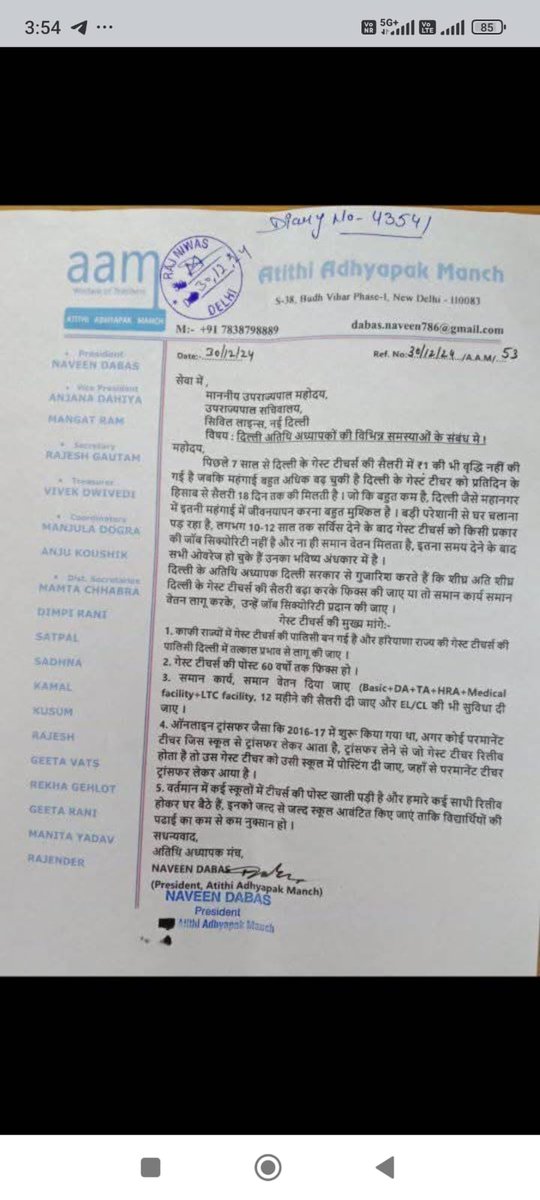 3:54
5G+
85
Diary No- 43541
aam
Welfare of Teachers
ATITHI ADHYAPAK MANCH
RAJ NIWAS
30.12.24
DELHI
Atithi Adhyapak Manch
S-38, Budh Vihar Phase-I, New Delhi - 110083
M:- +91 7838798889
dabas.naveen786@gmail.com
Date:- 30/12/24
Ref. No: 30/12/24 /A.A.M/ 53
• President
NAVEEN DABAS
• Vice President
ANJANA DAHIYA
MANGAT RAM
• Secretary
RAJESH GAUTAM
• Treasurer
VIVEK DWIVEDI
• Coordinators
MANJULA DOGRA
ANJU KOUSHIK
• Dist. Secretaries
MAMTA CHHABRA
DIMPI RANI
SATPAL
SADHNA
KAMAL
KUSUM
RAJESH
GEETA VATS
REKHA GEHLOT
GEETA RANI
MANITA YADAV
RAJENDER
सेवा में ,
माननीय उपराज्यपाल महोदय,
उपराज्यपाल सचिवालय,
सिविल लाइन्स, नई दिल्ली
विषय : दिल्ली अतिथि अध्यापकों की विभिन्न समस्याओं के संबंध मे।
महोदय,
पिछले 7 साल से दिल्ली के गेस्ट टीचर्स की सैलरी में ₹1 की भी वृद्धि नहीं की
गई है जबकि महंगाई बहुत अधिक बढ़ चुकी है दिल्ली के गेस्ट टीचर को प्रतिदिन के
हिसाब से सैलरी 18 दिन तक की मिलती है। जो कि बहुत कम है, दिल्ली जैसे महानगर
में इतनी महंगाई में जीवनयापन करना बहुत मुश्किल है। बड़ी परेशानी से घर चलाना
पड़ रहा है, लगभग 10-12 साल तक सर्विस देने के बाद गेस्ट टीचर्स को किसी प्रकार
की जॉब सिक्योरिटी नहीं है और ना ही समान वेतन मिलता है, इतना समय देने के बाद
सभी ओवरेज हो चुके हैं उनका भविष्य अंधकार में है।
दिल्ली के अतिथि अध्यापक दिल्ली सरकार से गुजारिश करते हैं कि शीघ्र अति शीघ्र
दिल्ली के गेस्ट टीचर्स की सैलरी बढ़ा करके फिक्स की जाए या तो समान कार्य समान
वेतन लागू करके, उन्हें जॉब सिक्योरिटी प्रदान की जाए।
गेस्ट टीचर्स की मुख्य मांगे:-
1. काफी राज्यों में गेस्ट टीचर्स की पालिसी बन गई है और हरियाणा राज्य की गेस्ट टीचर्स की
पालिसी दिल्ली में तत्काल प्रभाव से लागू की जाए।
2. गेस्ट टीचर्स की पोस्ट 60 वर्षो तक फिक्स हो।
3. समान कार्य, समान वेतन दिया जाए (Basic+DA+TA+HRA+Medical
facility+LTC facility, 12 महीने की सैलरी दी जाए और EL/CL की भी सुविधा दी
जाए।
4. ऑनलाइन ट्रांसफर जैसा कि 2016-17 में शुरू किया गया था, अगर कोई परमानेंट
टीचर जिस स्कूल से ट्रांसफर लेकर आता है, ट्रांसफर लेने से जो गेस्ट टीचर रिलीव
होता है तो उस गेस्ट टीचर को उसी स्कूल में पोस्टिंग दी जाए, जहाँ से परमानेंट टीचर
ट्रांसफर लेकर आया है।
5. वर्तमान में कई स्कूलों में टीचर्स की पोस्ट खाली पड़ी है और हमारे कई साथी रिलीव
होकर घर बैठे हैं, इनको जल्द से जल्द स्कूल आवंटित किए जाएं ताकि विद्यार्थियों की
पढाई का कम से कम नुक्सान हो।
सधन्यवाद,
अतिथि अध्यापक मंच,
NAVEEN DABAS
(President, Atithi Adhyapak Manch)
NAVEEN DABAS
President
Atithi Adhyapak Manch